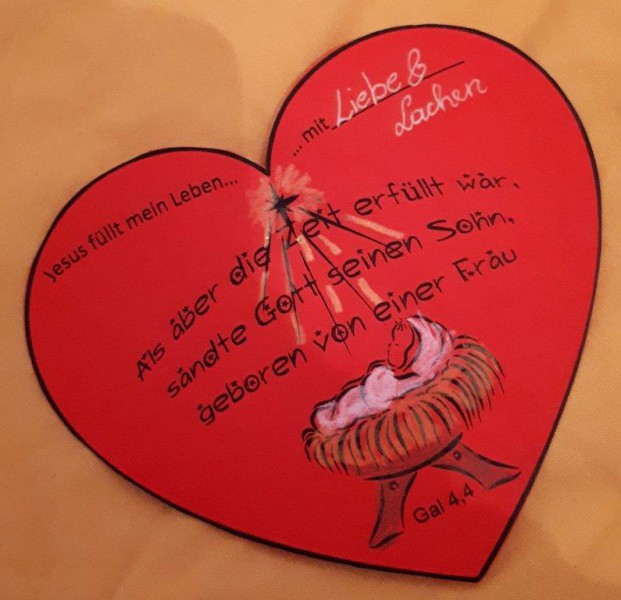 Jesus füllt mein Leben...
... mit Liebe &
Lachen
Als aber die Zeit erfüllt war,
sandte Gott seinen Sohn,
geboren von einer Frau
Gal 4,4